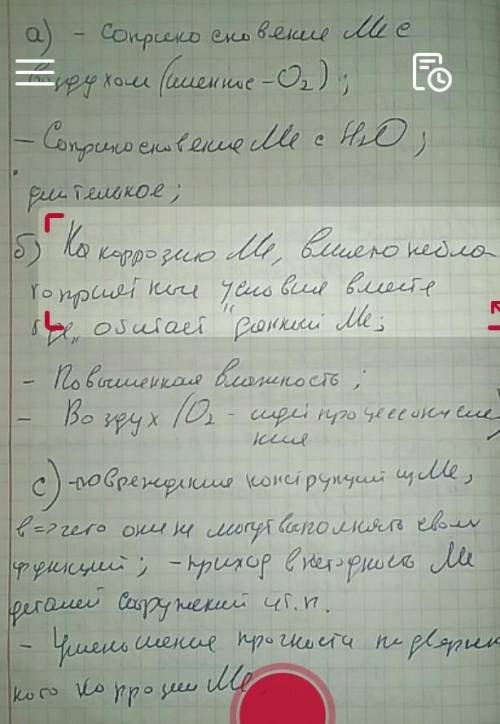 а) - Соприкосновение Ме с
воздухом (именно - O₂);
- Соприкосновение Ме с H₂O;
длительное;
б) На коррозию Ме, влияло небла
гоприятные условия вместе
где „обитает" данный Ме;
- Повышенная влажность;
- Воздух /O₂ - идёт процесс окисле
ния
с) - повреждения конструкций из Ме,
в => чего они не могут выполнять свои
функций; - приход в негодность Ме
деталей сооружений и т.п.
- Уменьшение прочности подвержен
ного коррозии Ме